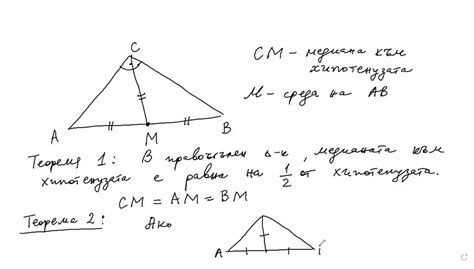 C
CM – медиана към
хипотенузата
M – среда на AB
A
M
B
Теорема 1: В правоъгълен Δ-к, медианата към
хипотенузата е равна на 1/2 от хипотенузата.
CM = AM = BM
Теорема 2: Ако
A